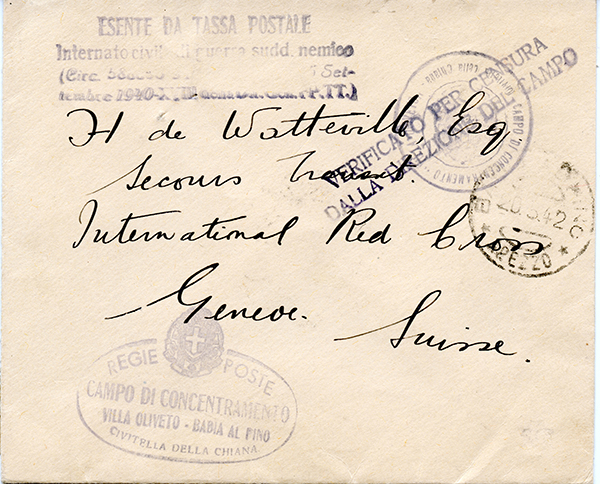 ESENTE DA TASSA POSTALE
Internato civile di guerra sudd. nemico
(Circ. Set-
tembre 1940-X P.TT.)
VERIFICATO PER CENSURA
DALLA DIREZIONE DEL CAMPO
CAMPO DI CONCENTRAMENTO
Civitella della Chiana
H de Watteville, Esq
Secours
International Red Cross
Geneve.
Suisse.
26.3.42
AREZZO
REGIE POSTE
CAMPO DI CONCENTRAMENTO
VILLA OLIVETO - BADIA AL PINO
CIVITELLA DELLA CHIANA